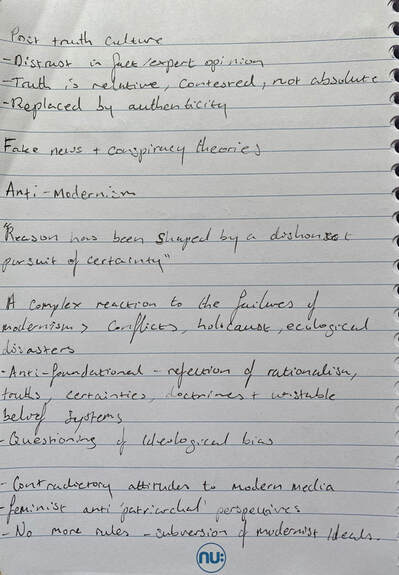 Post truth culture
- Distrust in fact/expert opinion
- Truth is relative, contested, not absolute
- Replaced by authenticity
Fake news + conspiracy theories
Anti-Modernism
"Reason has been shaped by a dishonest
pursuit of certainty"
A complex reaction to the failures of
modernism > conflicts, holocaust, ecological
disasters
- Anti-foundational - rejection of rationalism,
truths, certainties, doctrines +
belief systems
- Questioning of Ideological bias
- Contradictory attitudes to modern media
- feminist anti 'patriarchal' perspectives
- No more rules - subversion of modernist Ideals.
nu: